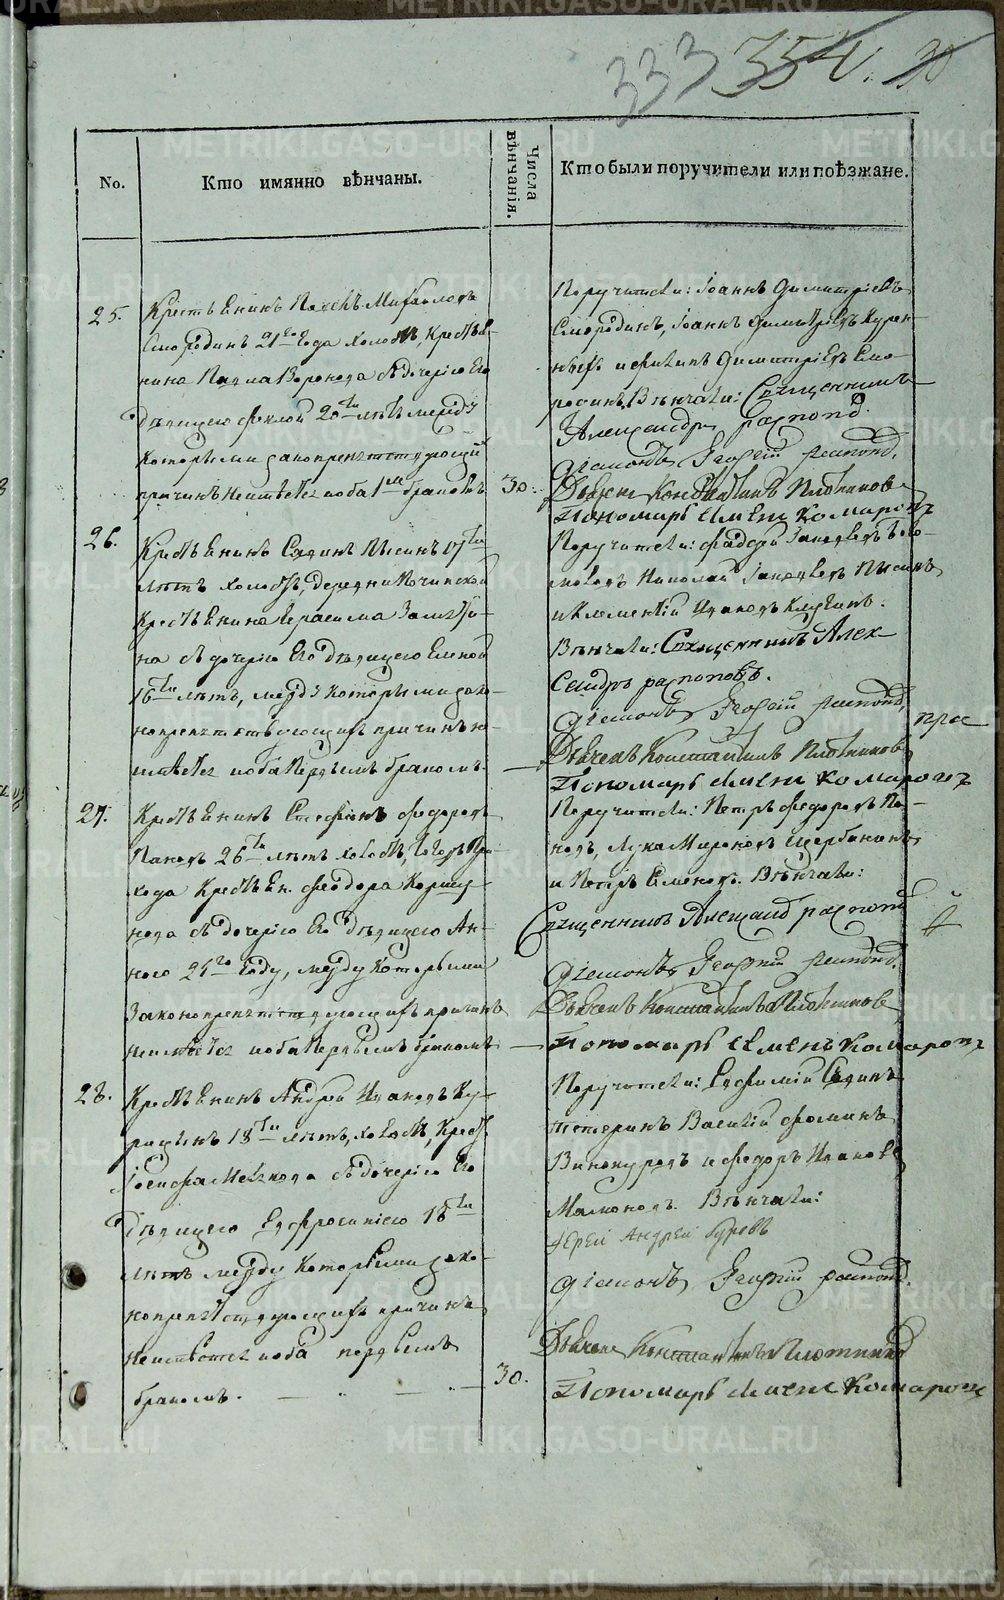 333 354. 30
No.
Кто имянно вѣнчаны.
Числа вѣнчанія.
Кто были поручители или поѣзжане.
25.
Крестьянинъ Михайловъ
Смородинъ 21 го года холостъ, Крестья-
нина Павла Воронова съ дочерію Его
Дѣвицею Феклой 20 ти лѣтъ между
которыми законопрепятствующихъ
причинъ неимѣется, оба 1 мъ бракомъ
30.
Поручители: Іоаннъ Димитріевъ
Смородинъ, Іоаннъ Димитріевъ
и Филипъ Димитріевъ Смо-
родинъ, Вѣнчали: Священникъ
Александръ
Діаконъ Георгій
Дьячекъ Константинъ Плотниковъ
Пономарь Семенъ Комаровъ
26.
Крестьянинъ Савинъ Лысинъ 17 ти
лѣтъ холостъ, деревни Починской
Крестьянина Герасима
на съ дочерію Его Дѣвицею Еленой
16 ти лѣтъ, между которыми зако-
нопрепятствующихъ причинъ не
имѣется, оба Первымъ бракомъ.
Поручители: Николай Яковлевъ Лысинъ
и Климентій Ивановъ
Вѣнчали: Священникъ Алек-
сандръ
Діаконъ Георгій
Дьячекъ Константинъ Плотниковъ
Пономарь Семенъ Комаровъ
27.
Крестьянинъ Стефанъ Федоровъ
Пановъ 26 ти лѣтъ холостъ, При-
хода Кресьян. Феодора Коршу-
нова съ дочерію Его Дѣвицею Ан-
ною 21 го Году, между Которыми
Законопрепятствующихъ причинъ
неимѣется, оба Первымъ бракомъ
Поручители: Петръ Федоровъ Па-
новъ, Лука Мироновъ Щербининъ
и Петръ Семеновъ. Вѣнчали:
Священникъ Александ
Діаконъ Георгій
Дьячекъ Константинъ Плотниковъ
Пономарь Семенъ Комаровъ
28.
Крестьянинъ Андрей Ивановъ Ку-
рицынъ 18 ти лѣтъ, холостъ, Крест.
Іосифа съ дочерію Его
Дѣвицею Евфросиніею 18 ти
лѣтъ между Которыми зако-
нопрепятствующихъ причинъ
неимѣется, оба первымъ
бракомъ.
30.
Поручители: Евфимій Савинъ
Тетеринъ Василій Фоминъ
Винокуровъ и Федоръ Ивановъ
Мамоновъ. Вѣнчали:
Іерей Андрей Гуревъ
Діаконъ Георгій
Дьячекъ Константинъ Плотниковъ
Пономарь Семенъ Комаровъ
METRIKI.GASO-URAL.RU